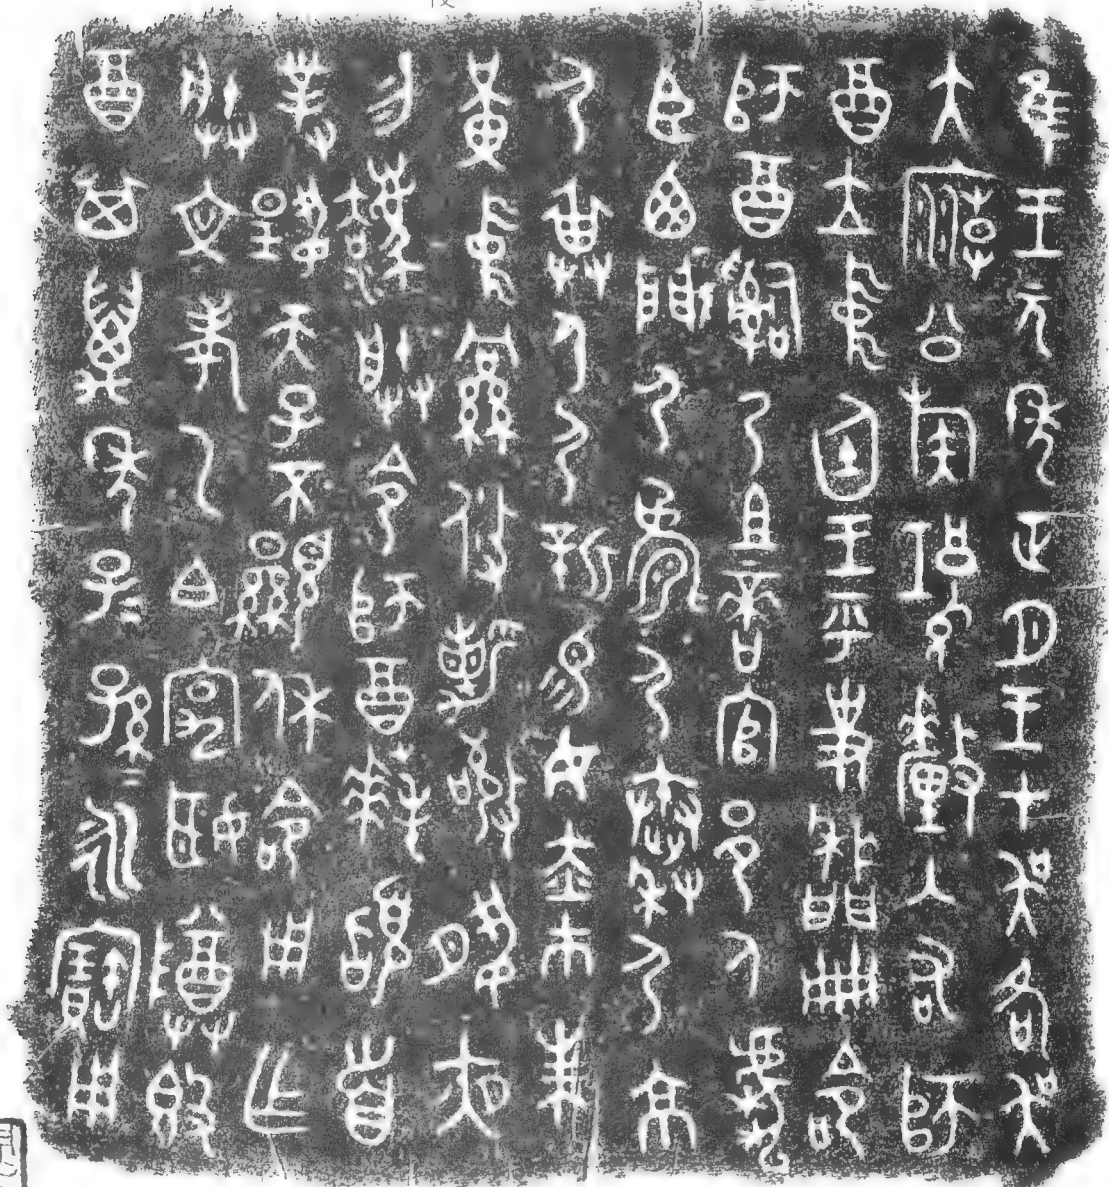 隹王元年正月王才吳各吳
大廟公族𤔲釐入右師
酉立中廷王乎史牆冊命
師酉𤔲乃且啻官邑人虎
臣西門尸尸秦尸京
尸畀身尸新易女赤巿朱
黃中攸勒敬夙夜
勿灋朕令師酉拜首
對揚天子不顯休命用乍
朕文考乙白宮姬尊簋
酉其萬年子子孫孫永寶用